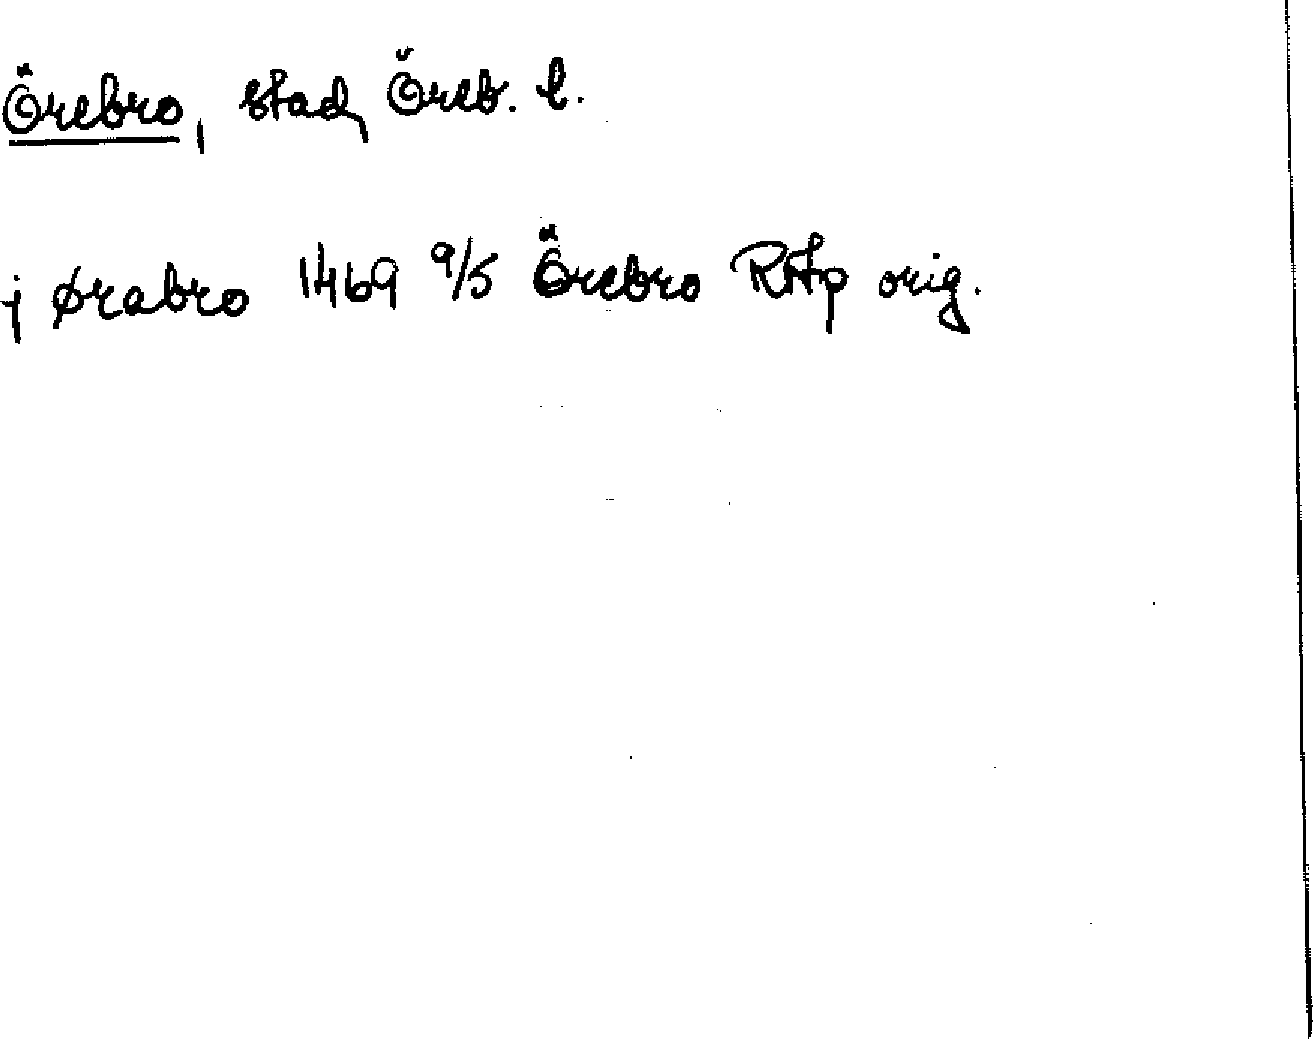 Örebro, stad, Öreb. l.
j ørabro 1469 9/5 Örebro RAp orig.